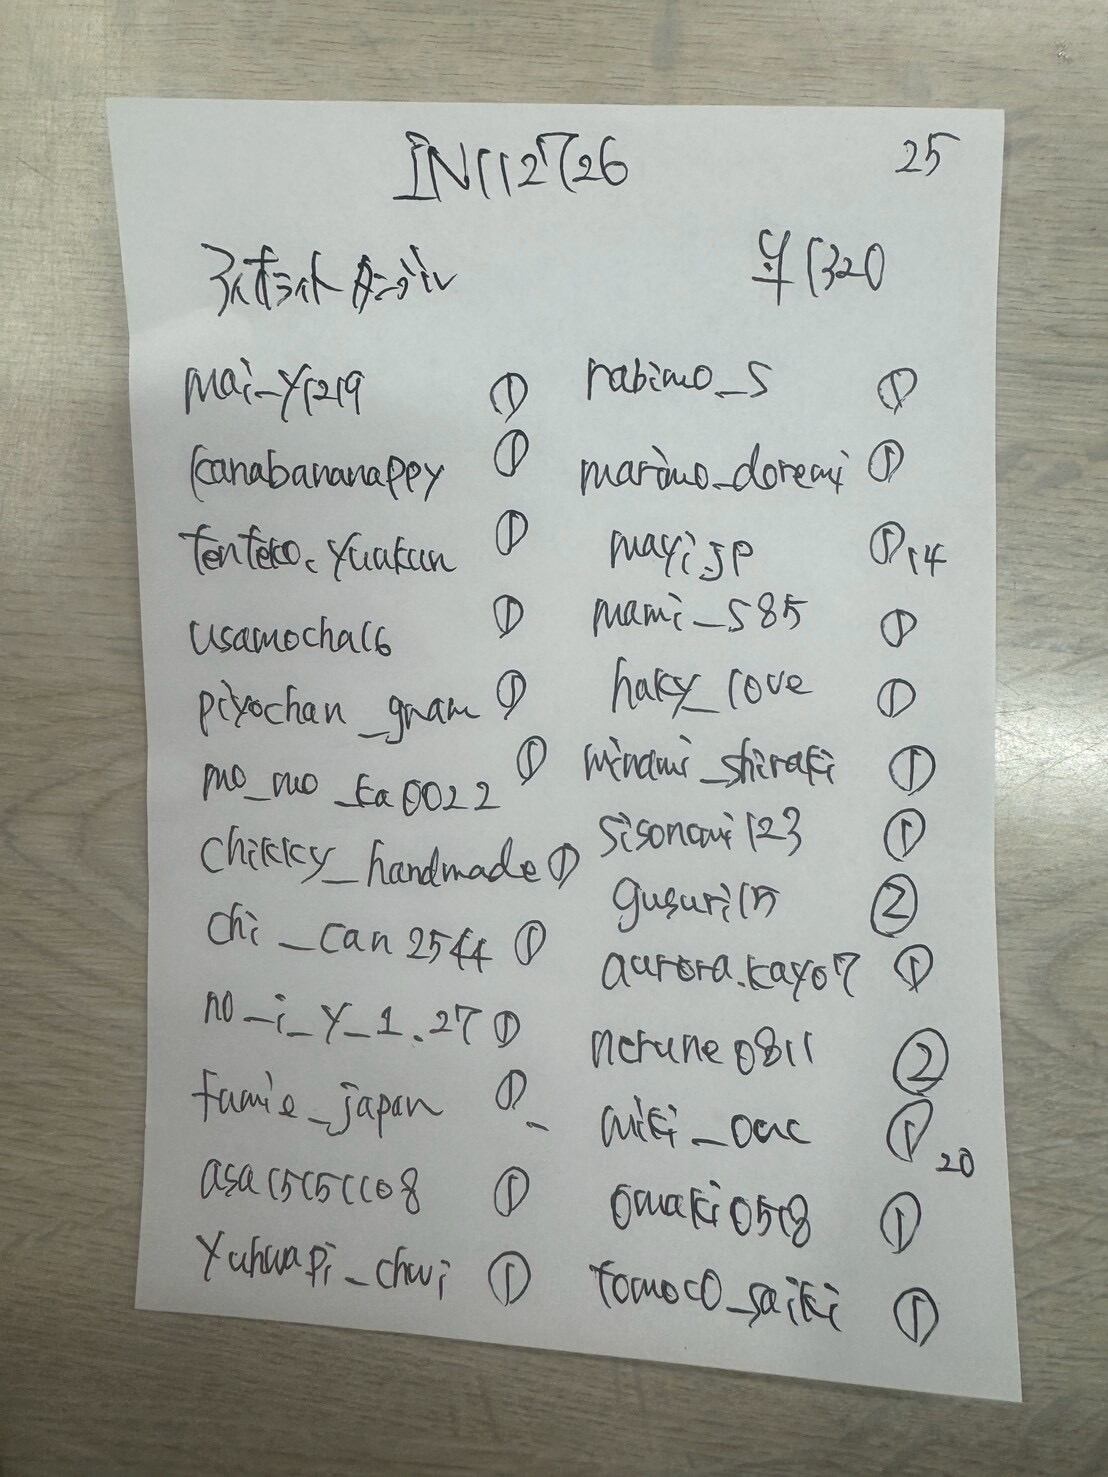 IN112726
25
単1320
mai_y1219 ①
kanabananappy ①
tenteko.yuukun ①
usamocha16 ①
piyochan_gnam ①
mo_mo_ka0022 ①
chikky_handmade ①
chi_can2544 ①
no_i_y_1.27 ①
fumie_japan ①
asa15151108 ①
yuhuapi_chui ①
rabimo_s ①
marimo_doremi ①
mayi.jp ① 14
mami_s85 ①
haky_love ①
minami_shiraki ①
sisonami123 ①
gusuri15 ②
aurora.kayo7 ①
nerune0811 ②
miki_ouc ① 20
omaki0518 ①
tomoco_saiki ①